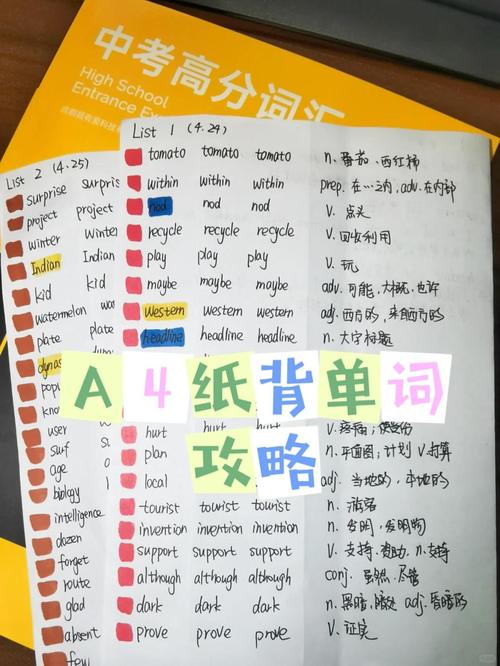 中考高分词汇
High School
Entrance Ex
List 1 (4.24)
tomato tomato tomato n. 番茄、西红柿
within within within prep. 在…之内, adv. 在内部
nod nod nod v. 点头
recycle recycle recycle v. 回收利用
play play play v. 玩
maybe maybe maybe adv. 可能, 大概, 也许
western western western adj. 西方的, 来自西方的
headline headline headline n. 大字标题
A4纸背单词
攻略
hurt hurt hurt v. 疼痛; 使受伤
plan plan plan n. 平面图; 计划 v. 打算
local local local adj. 当地的, 本地的
tourist tourist tourist n. 游客
invention invention invention n. 发明, 发明物
support support support v. 支持, 资助, n. 支持
although although although conj. 虽然, 尽管
dark dark dark n. 黑暗, adj. 昏暗的
prove prove prove v. 证实
List 2 (4.25)
surprise surpris
project project
winter winter
Indian Indian
kid kid
watermelon wa
plate plate
dynas
popu
kno
user
surf
age
biology
intelligence
dozen
forget
route
glad
absent
few